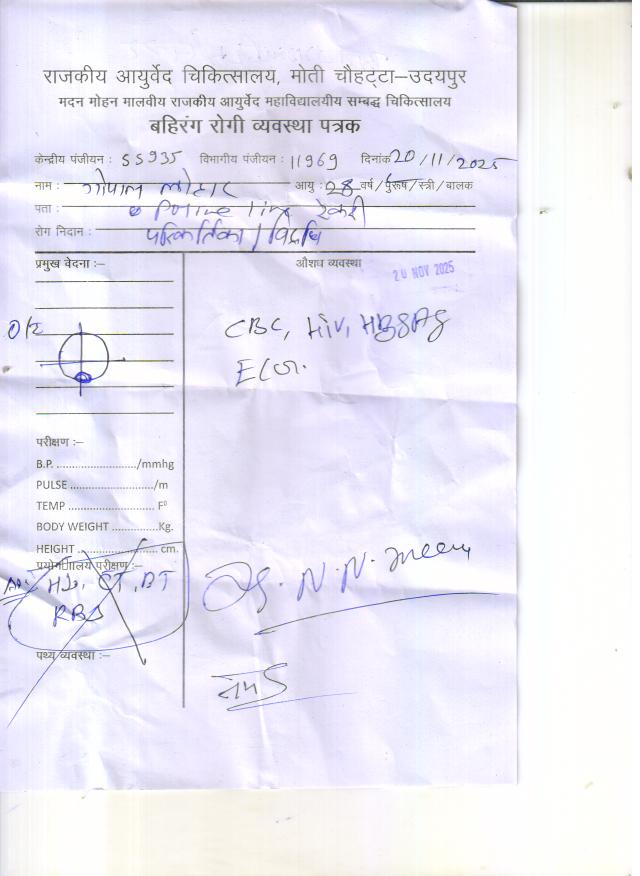 राजकीय आयुर्वेद चिकित्सालय, मोती चौहट्टा–उदयपुर
मदन मोहन मालवीय राजकीय आयुर्वेद महाविद्यालयीय सम्बद्ध चिकित्सालय
बहिरंग रोगी व्यवस्था पत्रक
केन्द्रीय पंजीयन : 55935 विभागीय पंजीयन : 11969 दिनांक 20/11/2025
नाम : गोपाल लोहार आयु : 28 वर्ष/पुरूष/स्त्री/बालक
पता : Police line टेकरी
रोग निदान : परिकर्तिका / विद्रधि
प्रमुख वेदना :– औशध व्यवस्था
20 NOV 2025
O/E
CBC, HIV, HBsAg
ECG.
परीक्षण :–
B.P. ........................./mmhg
PULSE ...................../m
TEMP .......................... F⁰
BODY WEIGHT ..............Kg.
HEIGHT ........................ cm.
प्रयोगशालीय परीक्षण :–
Hb, CT, BT
RBS
Dr. N. N. Meena
पथ्य व्यवस्था :–